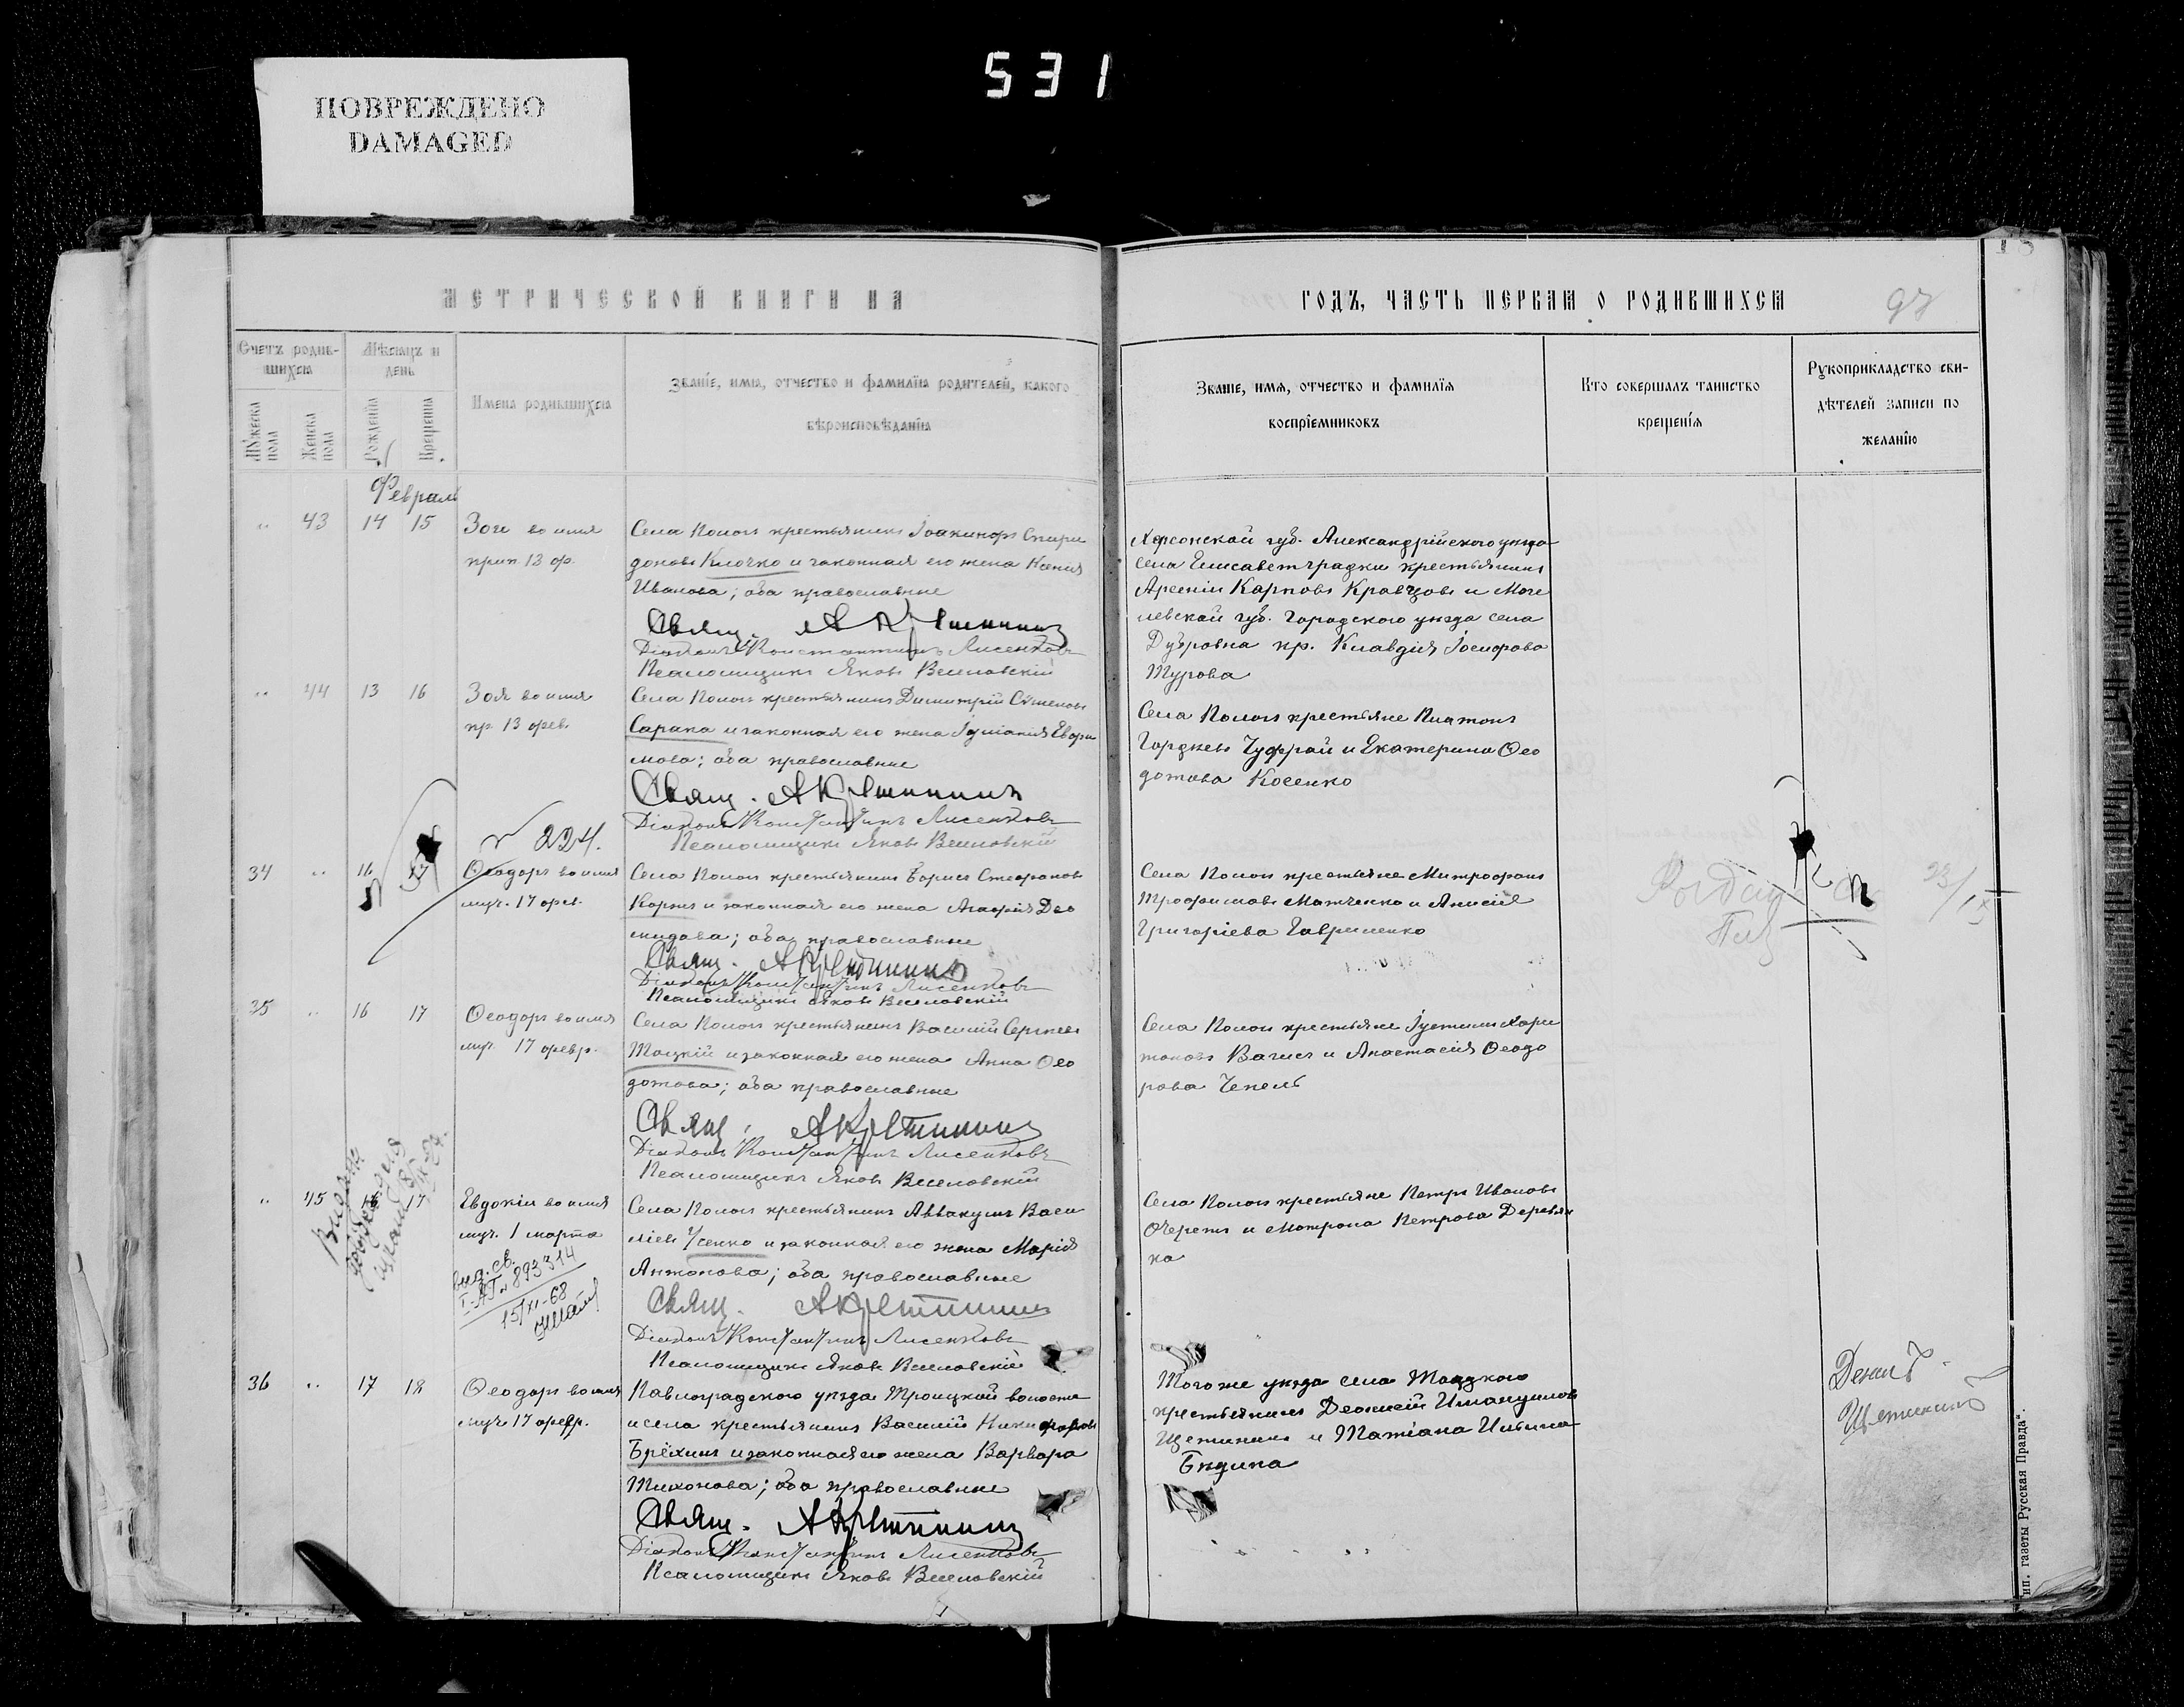 531
ПОВРЕЖДЕНО
DAMAGED
МЕТРИЧЕСКОЙ КНИГИ НА
ГОДЪ, ЧАСТЬ ПЕРВАЯ О РОДИВШИХСЯ
97
Счетъ родив-
шихся
Мужеска пола
Женска пола
Мѣсяцъ и
день
Рожденія
Крещенія
Имена родившихся
Званіе, имя, отчество и фамилія родителей, какого
вѣроисповѣданія
Званіе, имя, отчество и фамилія
воспріемниковъ
Кто совершалъ таинство
крещенія
Рукоприкладство сви-
дѣтелей записи по
желанію
Февраль
" 43 14 15 Зоя во имя
прп. 13 ф.
Села Пологъ крестьянинъ Іоакимъ Спири
доновъ Клочко и законная его жена Ксенія
Иванова; оба православные
Свящ.
Діаконъ Константинъ Лисенковъ
Псаломщикъ Яковъ Веселовскій
Херсонской губ. Александрійскаго уѣзда
села Елисаветградки крестьянинъ
Арсеній Карповъ Кравцовъ и Моги
левской губ. Городскаго уѣзда села
Дубровна кр. Клавдія Іосифова
Турова
" 44 13 16 Зоя во имя
пр. 13 фев.
Села Пологъ крестьянинъ Димитрій Сѵменовъ
Сарана и законная его жена Іуліанія Евфи
мова; оба православные
Свящ.
Діаконъ Константинъ Лисенковъ
Псаломщикъ Яковъ Веселовскій
Села Пологъ крестьяне Платонъ
Гордѣевъ Чуфрай и Екатерина Ѳео
дотова Косенко
224.
34 " 16 17 Ѳеодоръ во имя
муч. 17 фев.
Села Пологъ крестьянинъ Борисъ Стефановъ
Коржъ и законная его жена Агафія Део
мидова; оба православные
Свящ.
Діаконъ Константинъ Лисенковъ
Псаломщикъ Яковъ Веселовскій
Села Пологъ крестьяне Митрофанъ
Трофимовъ Матченко и Анисія
Григоріева Гавриленко
35 " 16 17 Ѳеодоръ во имя
муч. 17 февр.
Села Пологъ крестьянинъ Василій Сергѣевъ
Тоцкій и законная его жена Анна Ѳео
дотова; оба православные
Свящ.
Діаконъ Константинъ Лисенковъ
Псаломщикъ Яковъ Веселовскій
Села Пологъ крестьяне Іустинъ Хари
тоновъ Вагисъ и Анастасія Ѳеодо
рова Чепель
" 45 16 17 Евдокія во имя
муч. 1 марта
выд. св.
I-АП № 893314
15/XI-68
Села Пологъ крестьянинъ Аввакумъ Васи
ліевъ Усенко и законная его жена Марія
Антонова; оба православные
Свящ.
Діаконъ Константинъ Лисенковъ
Псаломщикъ Яковъ Веселовскій
Села Пологъ крестьяне Петръ Ивановъ
Очеретъ и Матрона Петрова Деревян
ка
36 " 17 18 Ѳеодоръ во имя
муч. 17 февр.
Павлоградскаго уѣзда Троицкой волости
и села крестьянинъ Василій Никифоровъ
Брёхинъ и законная его жена Варвара
Тихонова; оба православные
Свящ.
Діаконъ Константинъ Лисенковъ
Псаломщикъ Яковъ Веселовскій
Того же уѣзда села Троицкаго
крестьянинъ Деонисій Имануиловъ
Щетининъ и Татіана Ильина
Бѣдина
Щетининъ
тип. газеты "Русская Правда".